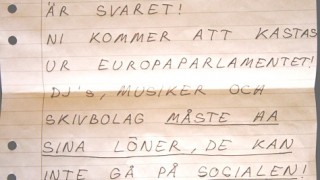 ÄR SVARET!
NI KOMMER ATT KASTAS
UR EUROPAPARLAMENTET!
DJ's, MUSIKER OCH
SKIVBOLAG MÅSTE HA
SINA LÖNER, DE KAN
INTE GÅ PÅ SOCIALEN!